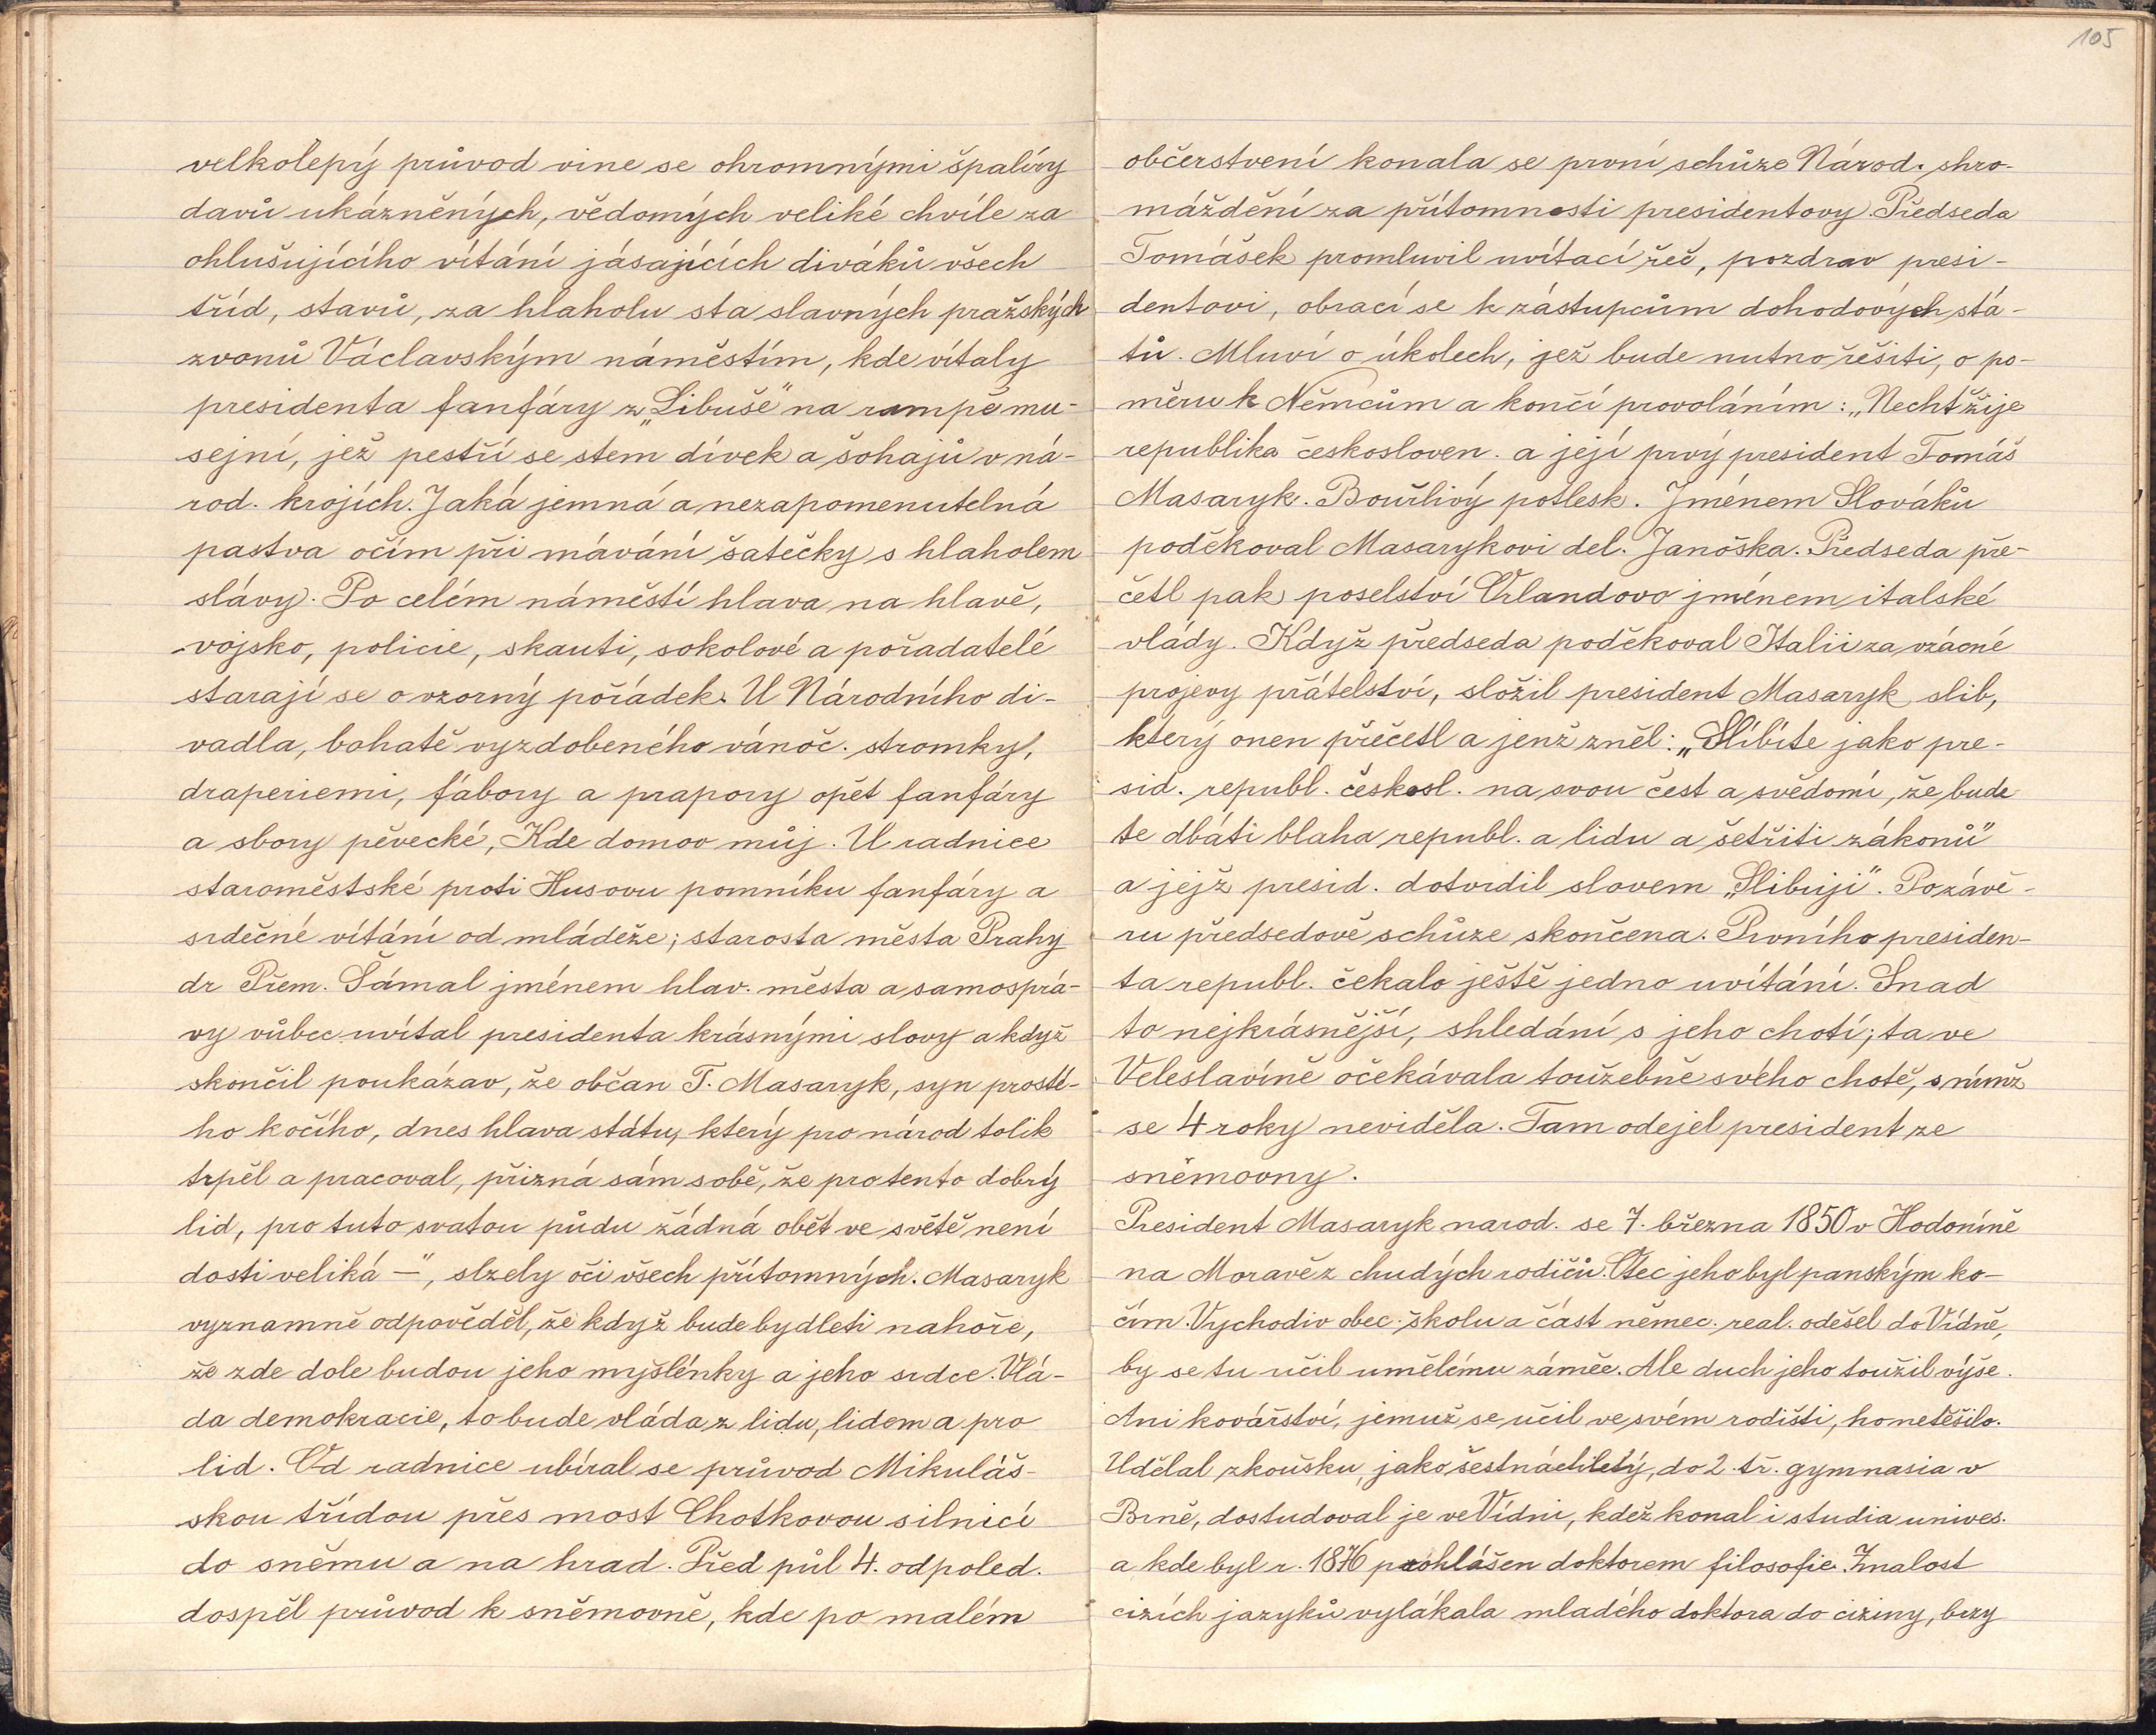 velkolepý průvod vine se ohromnými špalíry
davů ukázněných, vědomých veliké chvíle za
ohlušujícího vítání jásajících diváků všech
tříd, stavů, za hlaholu sta slavných pražských
zvonů Václavským náměstím, kde vítaly
presidenta fanfáry z „Libuše" na rampě mu-
sejní, jež pestří se stem dívek a šohajů v ná-
rod. krojích. Jaká jemná a nezapomenutelná
pastva očím při mávání šatečky s hlaholem
slávy. Po celém náměstí hlava na hlavě,
vojsko, policie, skauti, sokolové a pořadatelé
starají se o vzorný pořádek. U Národního di-
vadla, bohatě vyzdobeného vánoč. stromky,
draperiemi, fábory a prapory opět fanfáry
a sbory pěvecké, Kde domov můj. U radnice
staroměstské proti Husovu pomníku fanfáry a
srdečné vítání od mládeže; starosta města Prahy
dr Přem. Šámal jménem hlav. města a samosprá-
vy vůbec uvítal presidenta krásnými slovy a když
skončil poukázav, že občan T. Masaryk, syn prosté-
ho kočího, dnes hlava státu, který pro národ tolik
trpěl a pracoval, přizná sám sobě, že pro tento dobrý
lid, pro tuto svatou půdu žádná oběť ve světě není
dosti veliká —", slzely oči všech přítomných. Masaryk
významně odpověděl, že když bude bydleti nahoře,
že zde dole budou jeho myšlénky a jeho srdce. Vlá-
da demokracie, to bude vláda z lidu, lidem a pro
lid. Od radnice ubíral se průvod Mikuláš-
skou třídou přes most Chotkovou silnicí
do sněmu a na hrad. Před půl 4. odpoled.
dospěl průvod k sněmovně, kde po malém
105
občerstvení konala se první schůze Národ. shro-
máždění za přítomnosti presidentovy. Předseda
Tomášek promluvil uvítací řeč, pozdrav presi-
dentovi, obrací se k zástupcům dohodových stá-
tů. Mluví o úkolech, jež bude nutno řešiti, o po-
měru k Němcům a končí provoláním: „Nechť žije
republika českosloven. a její prvý president Tomáš
Masaryk. Bouřlivý potlesk. Jménem Slováků
poděkoval Masarykovi del. Janoška. Předseda pře-
četl pak poselství Orlandovo jménem italské
vlády. Když předseda poděkoval Italii za vzácné
projevy přátelství, složil president Masaryk slib,
který onen přečetl a jenž zněl: „Slíbíte jako pre-
sid. republ. českosl. na svou čest a svědomí, že bude
te dbáti blaha republ. a lidu a šetřiti zákonů"
a jejž presid. dotvrdil slovem „Slibuji". Po závě-
ru předsedově schůze skončena. Prvního presiden-
ta republ. čekalo ještě jedno uvítání. Snad
to nejkrásnější, shledání s jeho chotí; ta ve
Veleslavíně očekávala toužebně svého chotě, s nímž
se 4 roky neviděla. Tam odejel president ze
sněmovny.
President Masaryk narod. se 7. března 1850 v Hodoníně
na Moravě z chudých rodičů. Otec jeho byl panským ko-
čím. Vychodiv obec. školu a část němec. real. odešel do Vídně,
by se tu učil umělému zámeč. Ale duch jeho toužil výše.
Ani kovářství, jemuž se učil ve svém rodišti, ho netěšilo.
Udělal zkoušku, jako šestnáctiletý, do 2. tř. gymnasia v
Brně, dostudoval je ve Vídni, kdež konal i studia univers.
a kde byl r. 1876 prohlášen doktorem filosofie. Znalost
cizích jazyků vylákala mladého doktora do ciziny, brzy